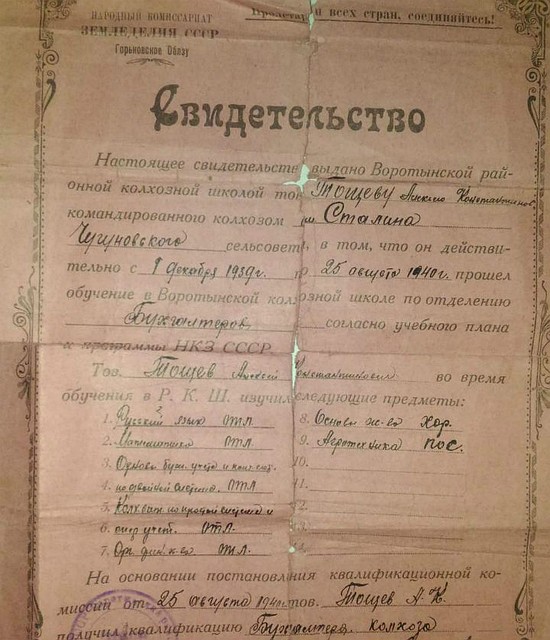 НАРОДНЫЙ КОМИССАРИАТ
ЗЕМЛЕДЕЛИЯ СССР
Горьковское Облзу
Пролетарии всех стран, соединяйтесь!
Свидетельство
Настоящее свидетельств выдано Воротынской рай-
онной колхозной школой то Тощеву Алексею Константинов.
командированого колхозом им Сталина
Чугуновского сельсовет, в том, что он действи-
тельно с 1 декабря 1939г. по 25 августа 1940г. прошел
обучение в Воротынской колхозной школе по отделению
Бухгалтеров согласно учебного плана
и программы НКЗ СССР
Тов. Тощев Алексей Константинович во время
обучения в Р. К. Ш. изучил следующие предметы:
1. Русский язык отл.
2. Математика отл.
3. Основы бух. учета
4. по двойной система. отл
5. по простой системе и
6. учет. отл.
7. Орг. отл.
8. Основы хор.
9. Агротехника пос.
10.
12.
На основании постановления квалификационной ко-
миссии от 25 августа 1940 тов. Тощев А. К.
получил квалификацию Бухгалтера колхоза